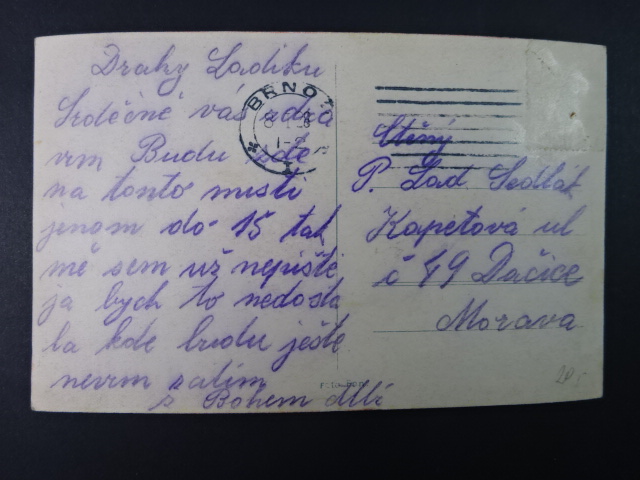 Drahy Ladiku
Srděčně vás zdra
vim Budu zde
na tomto mistě
jenom do 15 tak
mě sem už nepište
ja bych to nedosta
la kde budu ještě
nevim zatím
z Bohem
BRNO
Ctěný
P. Lad Sedlák
Kapetová ul
č 49 Dačice
Morava